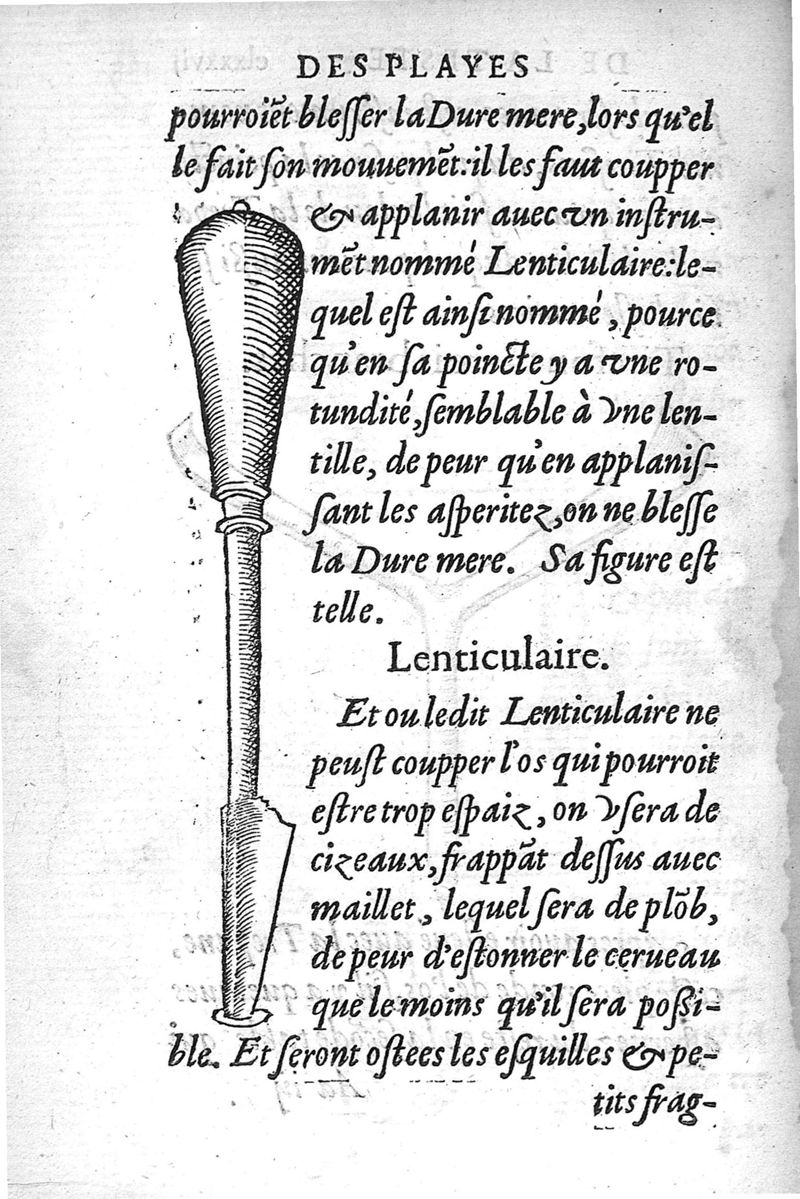 DES PLAYES
pourroiẽt blesser la Dure mere, lors qu'el
le fait son mouuemẽt: il les faut coupper
& applanir auec vn instru-
mẽt nommé Lenticulaire: le-
quel est ainsi nommé, pource
qu'en sa poincte y a vne ro-
tundité, semblable à vne len-
tille, de peur qu'en applanis-
sant les asperitez, on ne blesse
la Dure mere. Sa figure est
telle.
Lenticulaire.
Et ou ledit Lenticulaire ne
peust coupper l'os qui pourroit
estre trop espaiz, on vsera de
cizeaux, frappãt dessus auec
maillet, lequel sera de plõb,
de peur d'estonner le cerueau
que le moins qu'il sera possi-
ble. Et seront ostees les esquilles & pe-
tits frag-